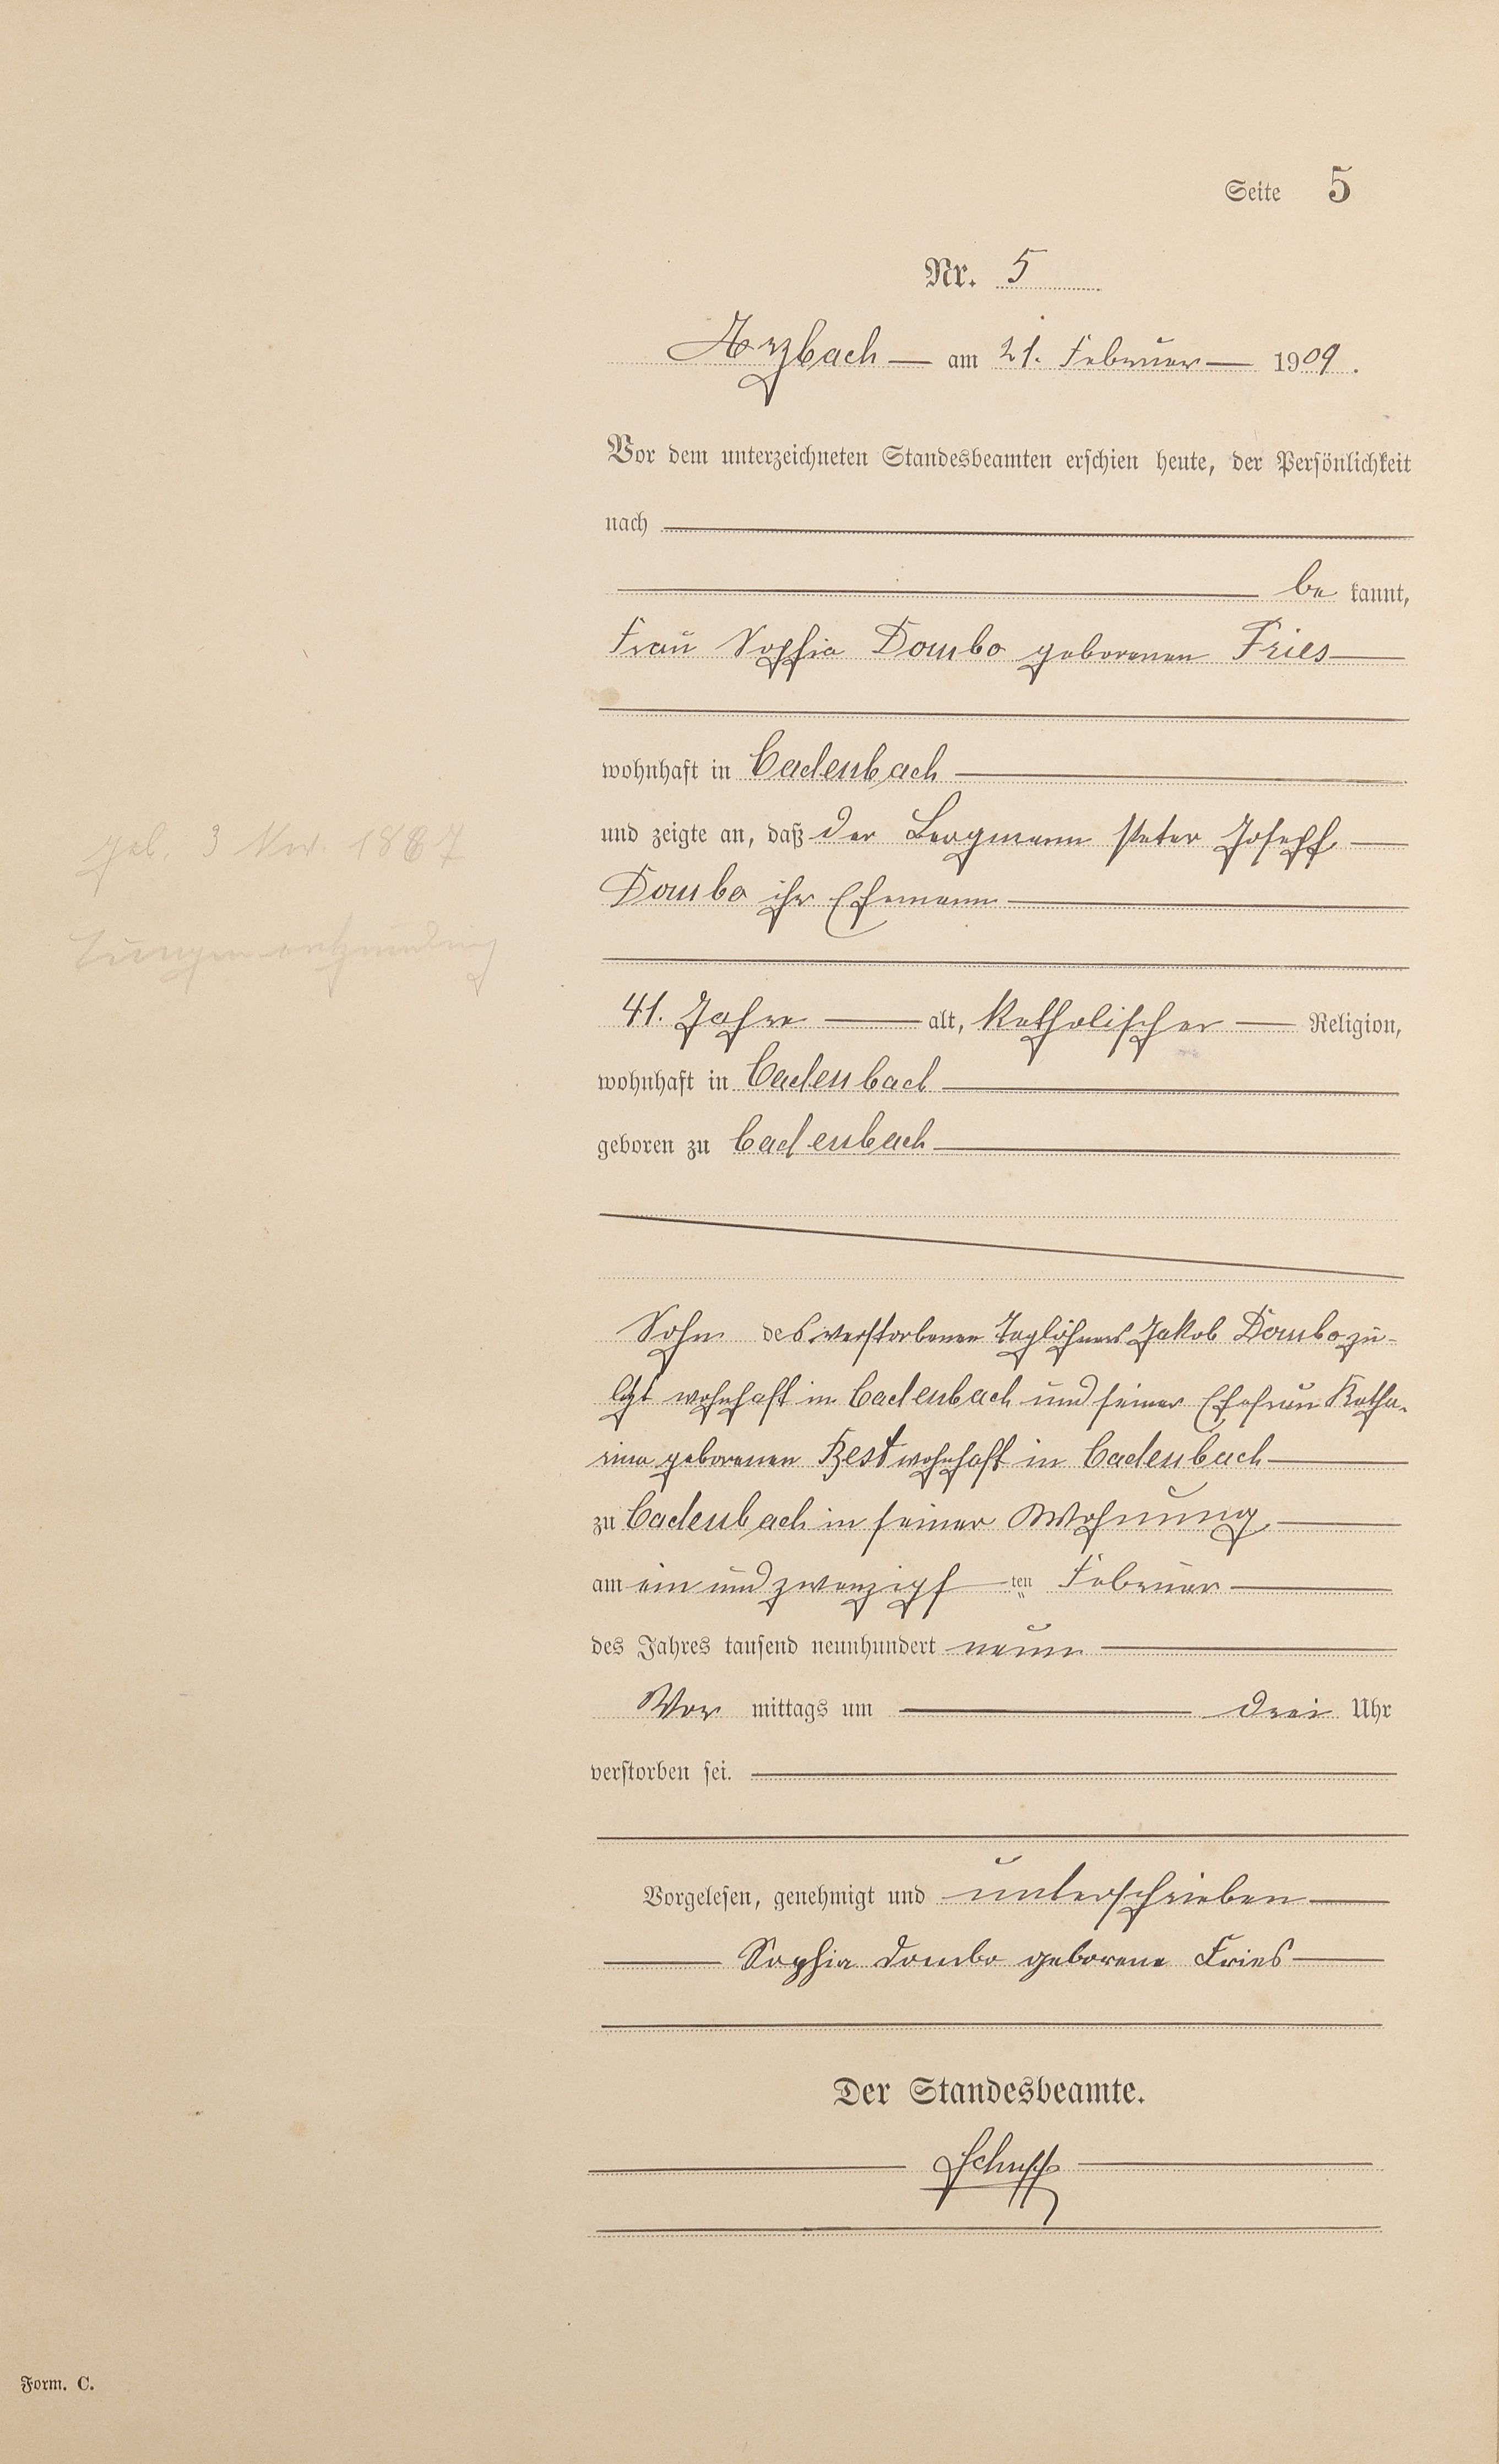 Seite 5
Nr. 5
Arzbach am 21. Februar 1909.
Vor dem unterzeichneten Standesbeamten erschien heute, der Persönlichkeit
nach
be kannt,
Frau Sophia Dombo geborenen Fries
wohnhaft in Cadenbach
und zeigte an, daß der Bergmann Peter Joseph
Dombo ihr Ehemann
geb. 3 Nov. 1867
Lungenentzündung
41. Jahre alt, katholischer Religion,
wohnhaft in Cadenbach
geboren zu Cadenbach
Sohn des verstorbenen Taglöhners Jakob Dombo zu-
letzt wohnhaft in Cadenbach und seiner Ehefrau Katha-
rina geborenen Best wohnhaft in Cadenbach
zu Cadenbach in seiner Wohnung
am ein und zwanzigsten Februar
des Jahres tausend neunhundert neun
Vor mittags um drei Uhr
verstorben sei.
Vorgelesen, genehmigt und unterschrieben
Sophia Dombo geborene Fries
Der Standesbeamte.
Form. C.